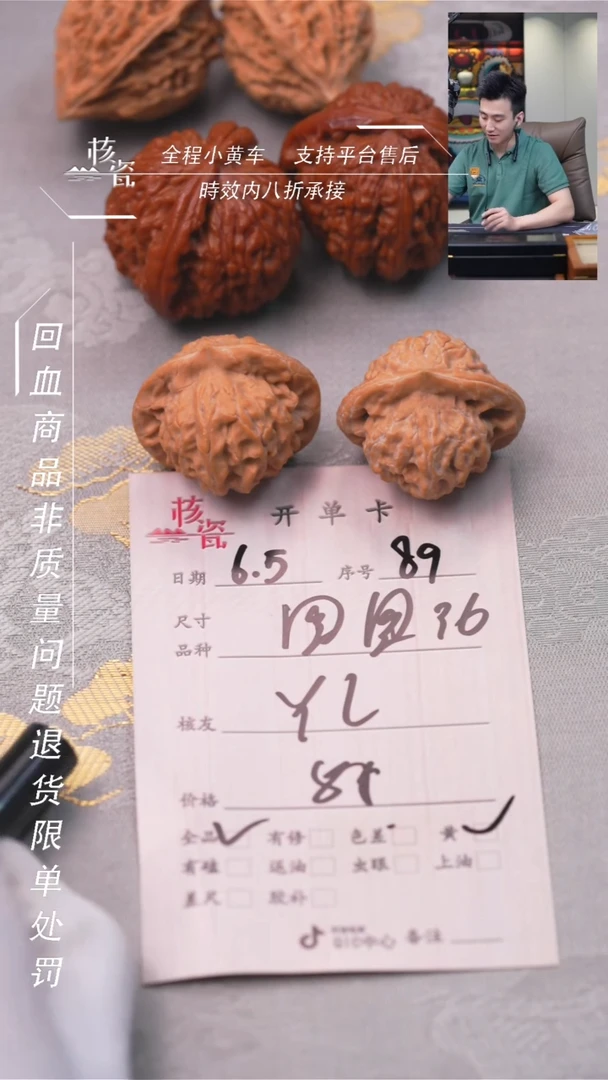 核瓷
全程小黄车 支持平台售后
時效内八折承接
回血商品非质量问题退货限单处罚
核瓷
开单卡
日期 6.5 序号 89
尺寸
品种 36
核友 YL
价格
全品 ✓ 有修 色差 黄 ✓
有磕 返油 虫眼 上油
差尺 胶补
QIC中心 备注